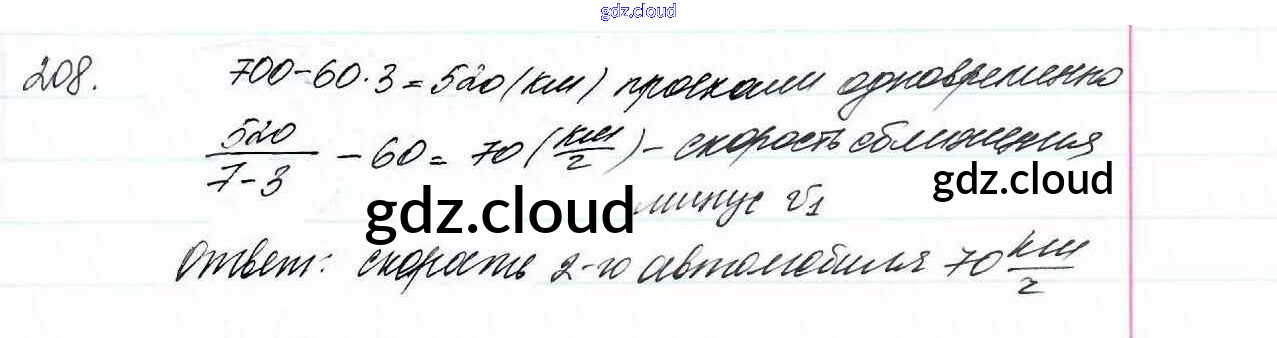 gdz.cloud
208. 700-60·3=520(км) проехали одновременно
520/(7-3) - 60 = 70 (км/г) - скорость сближения
gdz.cloud
gdz.cloud минус v₁
Ответ: скорость 2-го автомобиля 70 км/г